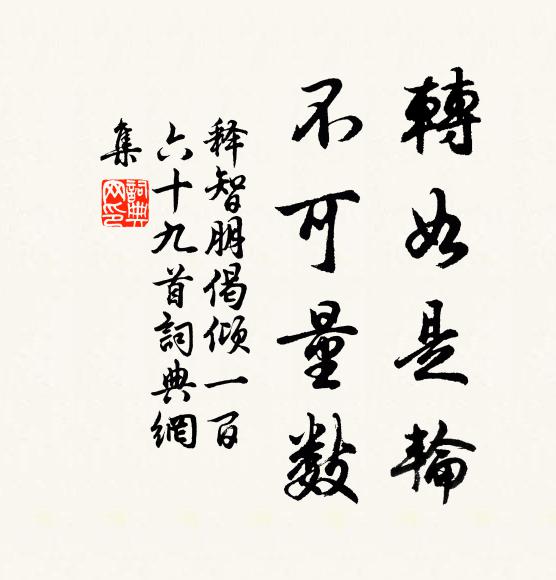 轉如是輪
不可量數
释智朋偈倾一百
六十九首詞典網
集
詞典
网印